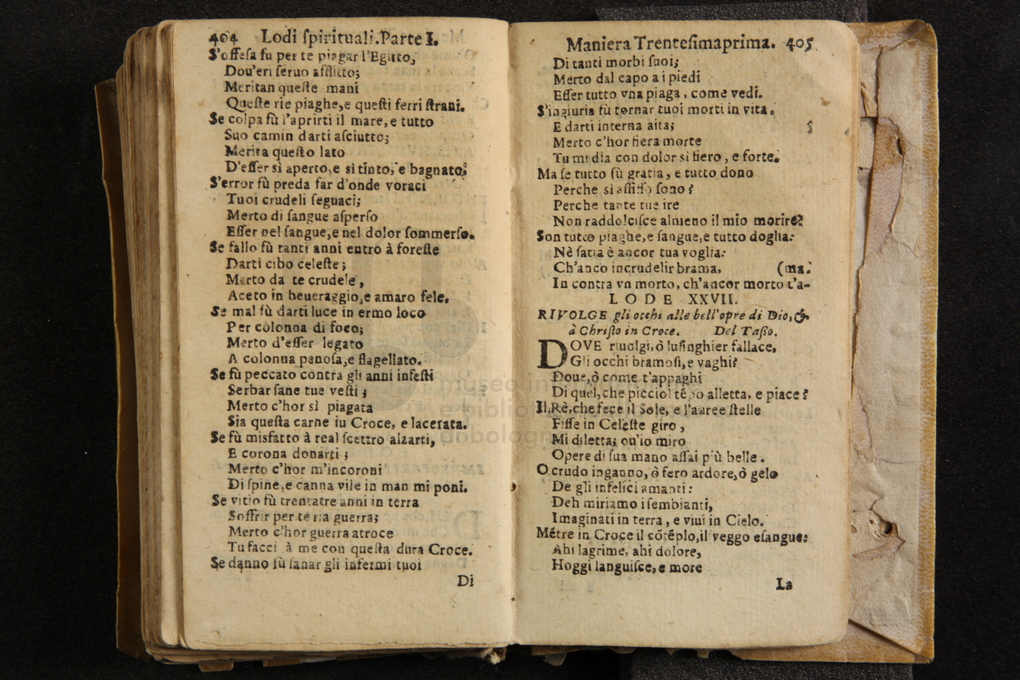 404 Lodi ſpirituali.Parte I.
S'offeſa fu per te piagar l'Egitto,
Dou'eri ſeruo afflitto;
Meritan queſte mani
Queſte rie piaghe,e queſti ferri ſtrani.
Se colpa fù l'aprirti il mare,e tutto
Suo camin darti aſciutto;
Merita queſto lato
D'eſſer sì aperto,e sì tinto,e bagnato?
S'error fù preda far d'onde voraci
Tuoi crudeli ſeguaci;
Merto di ſangue aſperſo
Eſſer nel ſangue,e nel dolor ſommerſo.
Se fallo fù tanti anni entro à foreſte
Darti cibo celeſte;
Merto da te crudele,
Aceto in beueraggio,e amaro fele.
Se mal fù darti luce in ermo loco
Per colonna di foco;
Merto d'eſſer legato
A colonna penoſa,e flagellato.
Se fù peccato contra gli anni infeſti
Serbar ſane tue veſti;
Merto c'hor sì piagata
Sia queſta carne iu Croce, e lacerata.
Se fù misfatto à real ſcettro alzarti,
E corona donarti;
Merto c'hor m'incoroni
Di ſpine,e canna vile in man mi poni.
Se vitio fù trentatre anni in terra
Soffrir per te ria guerra;
Merto c'hor guerra atroce
Tu facci à me con queſta dura Croce.
Se danno fù ſanar gli infermi tuoi
Di
Maniera Trenteſimaprima. 405
Di tanti morbi ſuoi;
Merto dal capo a i piedi
Eſſer tutto vna piaga, come vedi.
S'ingiuria fù tornar tuoi morti in vita,
E darti interna aita;
Merto c'hor fiera morte
Tu mi dia con dolor sì fiero, e forte.
Ma ſe tutto fù gratia, e tutto dono
Perche sì afflitto ſono?
Perche tante tue ire
Non raddolciſce almeno il mio morire?
Son tutto piaghe,e ſangue,e tutto doglia:
Nè ſatia è ancor tua voglia:
Ch'anco incrudelir brama, (ma.
In contra vn morto, ch'ancor morto t'a-
LODE XXVII.
RIVOLGE gli occhi alle bell'opre di Dio,&
à Chriſto in Croce. Del Taſſo.
DOVE riuolgi,ò luſinghier fallace,
Gli occhi bramoſi,e vaghi?
Doue,ò come t'appaghi
Di quel,che picciol tẽpo alletta, e piace?
Il Rè,che fece il Sole, e l'auree ſtelle
Fiſſe in Celeſte giro,
Mi diletta; ou'io miro
Opere di ſua mano aſſai più belle.
O crudo inganno,ò fero ardore,ò gelo
De gli infelici amanti:
Deh miriamo i ſembianti,
Imaginati in terra, e viui in Cielo.
Mẽtre in Croce il cõtẽplo,il veggo eſangue:
Ahi lagrime, ahi dolore,
Hoggi languiſce,e more
La